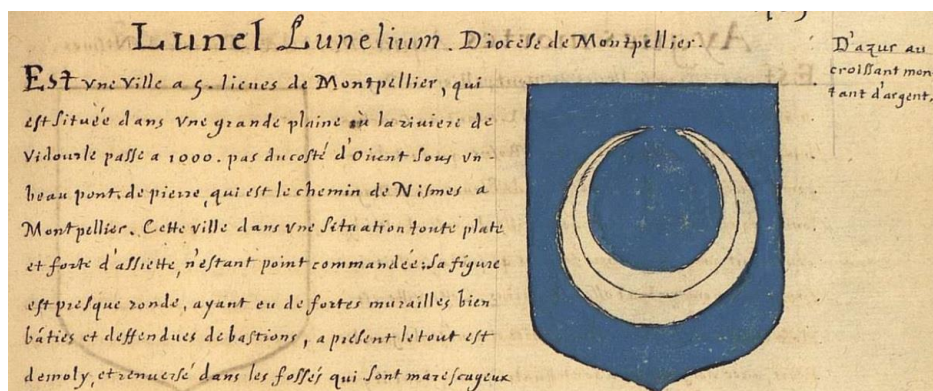 Lunel Lunelium. Diocese de Montpellier.
Est vne ville a 5. lieues de Montpellier, qui
est située dans vne grande plaine où la riviere de
Vidourle passe a 1000. pas du costé d'Orient sous vn
beau pont de pierre, qui est le chemin de Nismes a
Montpellier. Cette ville dans vne situation toute plate
et forte d'assiette, n'estant point commandée; sa figure
est presque ronde, ayant eu de fortes murailles bien
bâties et deffendues de bastions, a present le tout est
demoly, et renversé dans les fossés qui sont marescageux
D'azur au
croissant mon-
tant d'argent.